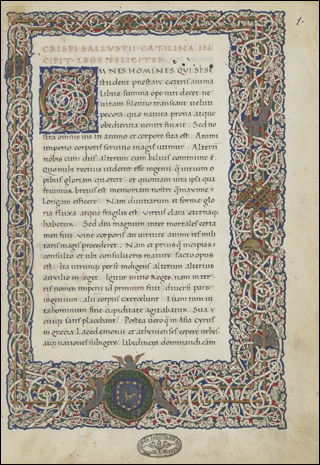 1.
CRISPI SALLVSTII CATILINA IN
CIPIT LEGE FELICITER
OMNES HOMINES QVI SESE
student prestare ceteris anima
libus summa ope niti decet ne
uitam silentio transeant ueluti
pecora que natura prona atque
obedientia uentri finxit. Sed no
stra omnis uis in animo et corpore sita est. Animi
imperio corporis seruitio magis utimur. Alterum
nobis cum diis alterum cum beluis commune est.
Quo mihi rectius uidetur esse ingenii quam uirium o
pibus gloriam querere. et quoniam uita ipsa qua
fruimur breuis est memoriam nostri quam maxime
longam efficere. Nam diuitiarum et forme glo
ria fluxa atque fragilis est. Virtus clara eternaque
habetur. Sed diu magnum inter mortales certa
men fuit uine corporis an uirtute animi res mili
taris magis procederet. Nam et prius quam incipias
consulto et ubi consulueris mature facto opus
est. Ita utrumque per se indigens alterum alterius
auxilio eget. Igitur initio Reges nam in ter
ris nomen imperii id primum fuit diuersi pars
ingenium alii corpus exercebant. Etiam tum ui
ta hominum sine cupiditate agitabatur. Sua
cuique satis placebant. Postea uero quam in Asia Cyrus
in grecia Lacedemonii et athenienses cepere urbes
atque nationes subigere. libidinem dominandi cam